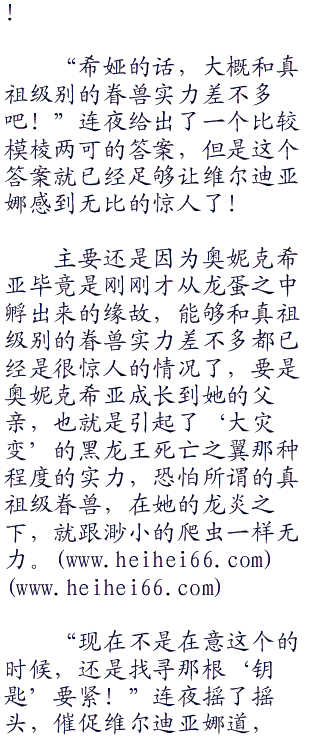 ！
“希娅的话，大概和真
祖级别的眷兽实力差不多
吧！”连夜给出了一个比较
模棱两可的答案，但是这个
答案就已经足够让维尔迪亚
娜感到无比的惊人了！
主要还是因为奥妮克希
亚毕竟是刚刚才从龙蛋之中
孵出来的缘故，能够和真祖
级别的眷兽实力差不多都已
经是很惊人的情况了，要是
奥妮克希亚成长到她的父
亲，也就是引起了‘大灾
变’的黑龙王死亡之翼那种
程度的实力，恐怕所谓的真
祖级眷兽，在她的龙炎之
下，就跟渺小的爬虫一样无
力。(www.heihei66.com)
(www.heihei66.com)
“现在不是在意这个的
时候，还是找寻那根‘钥
匙’要紧！”连夜摇了摇
头，催促维尔迪亚娜道，